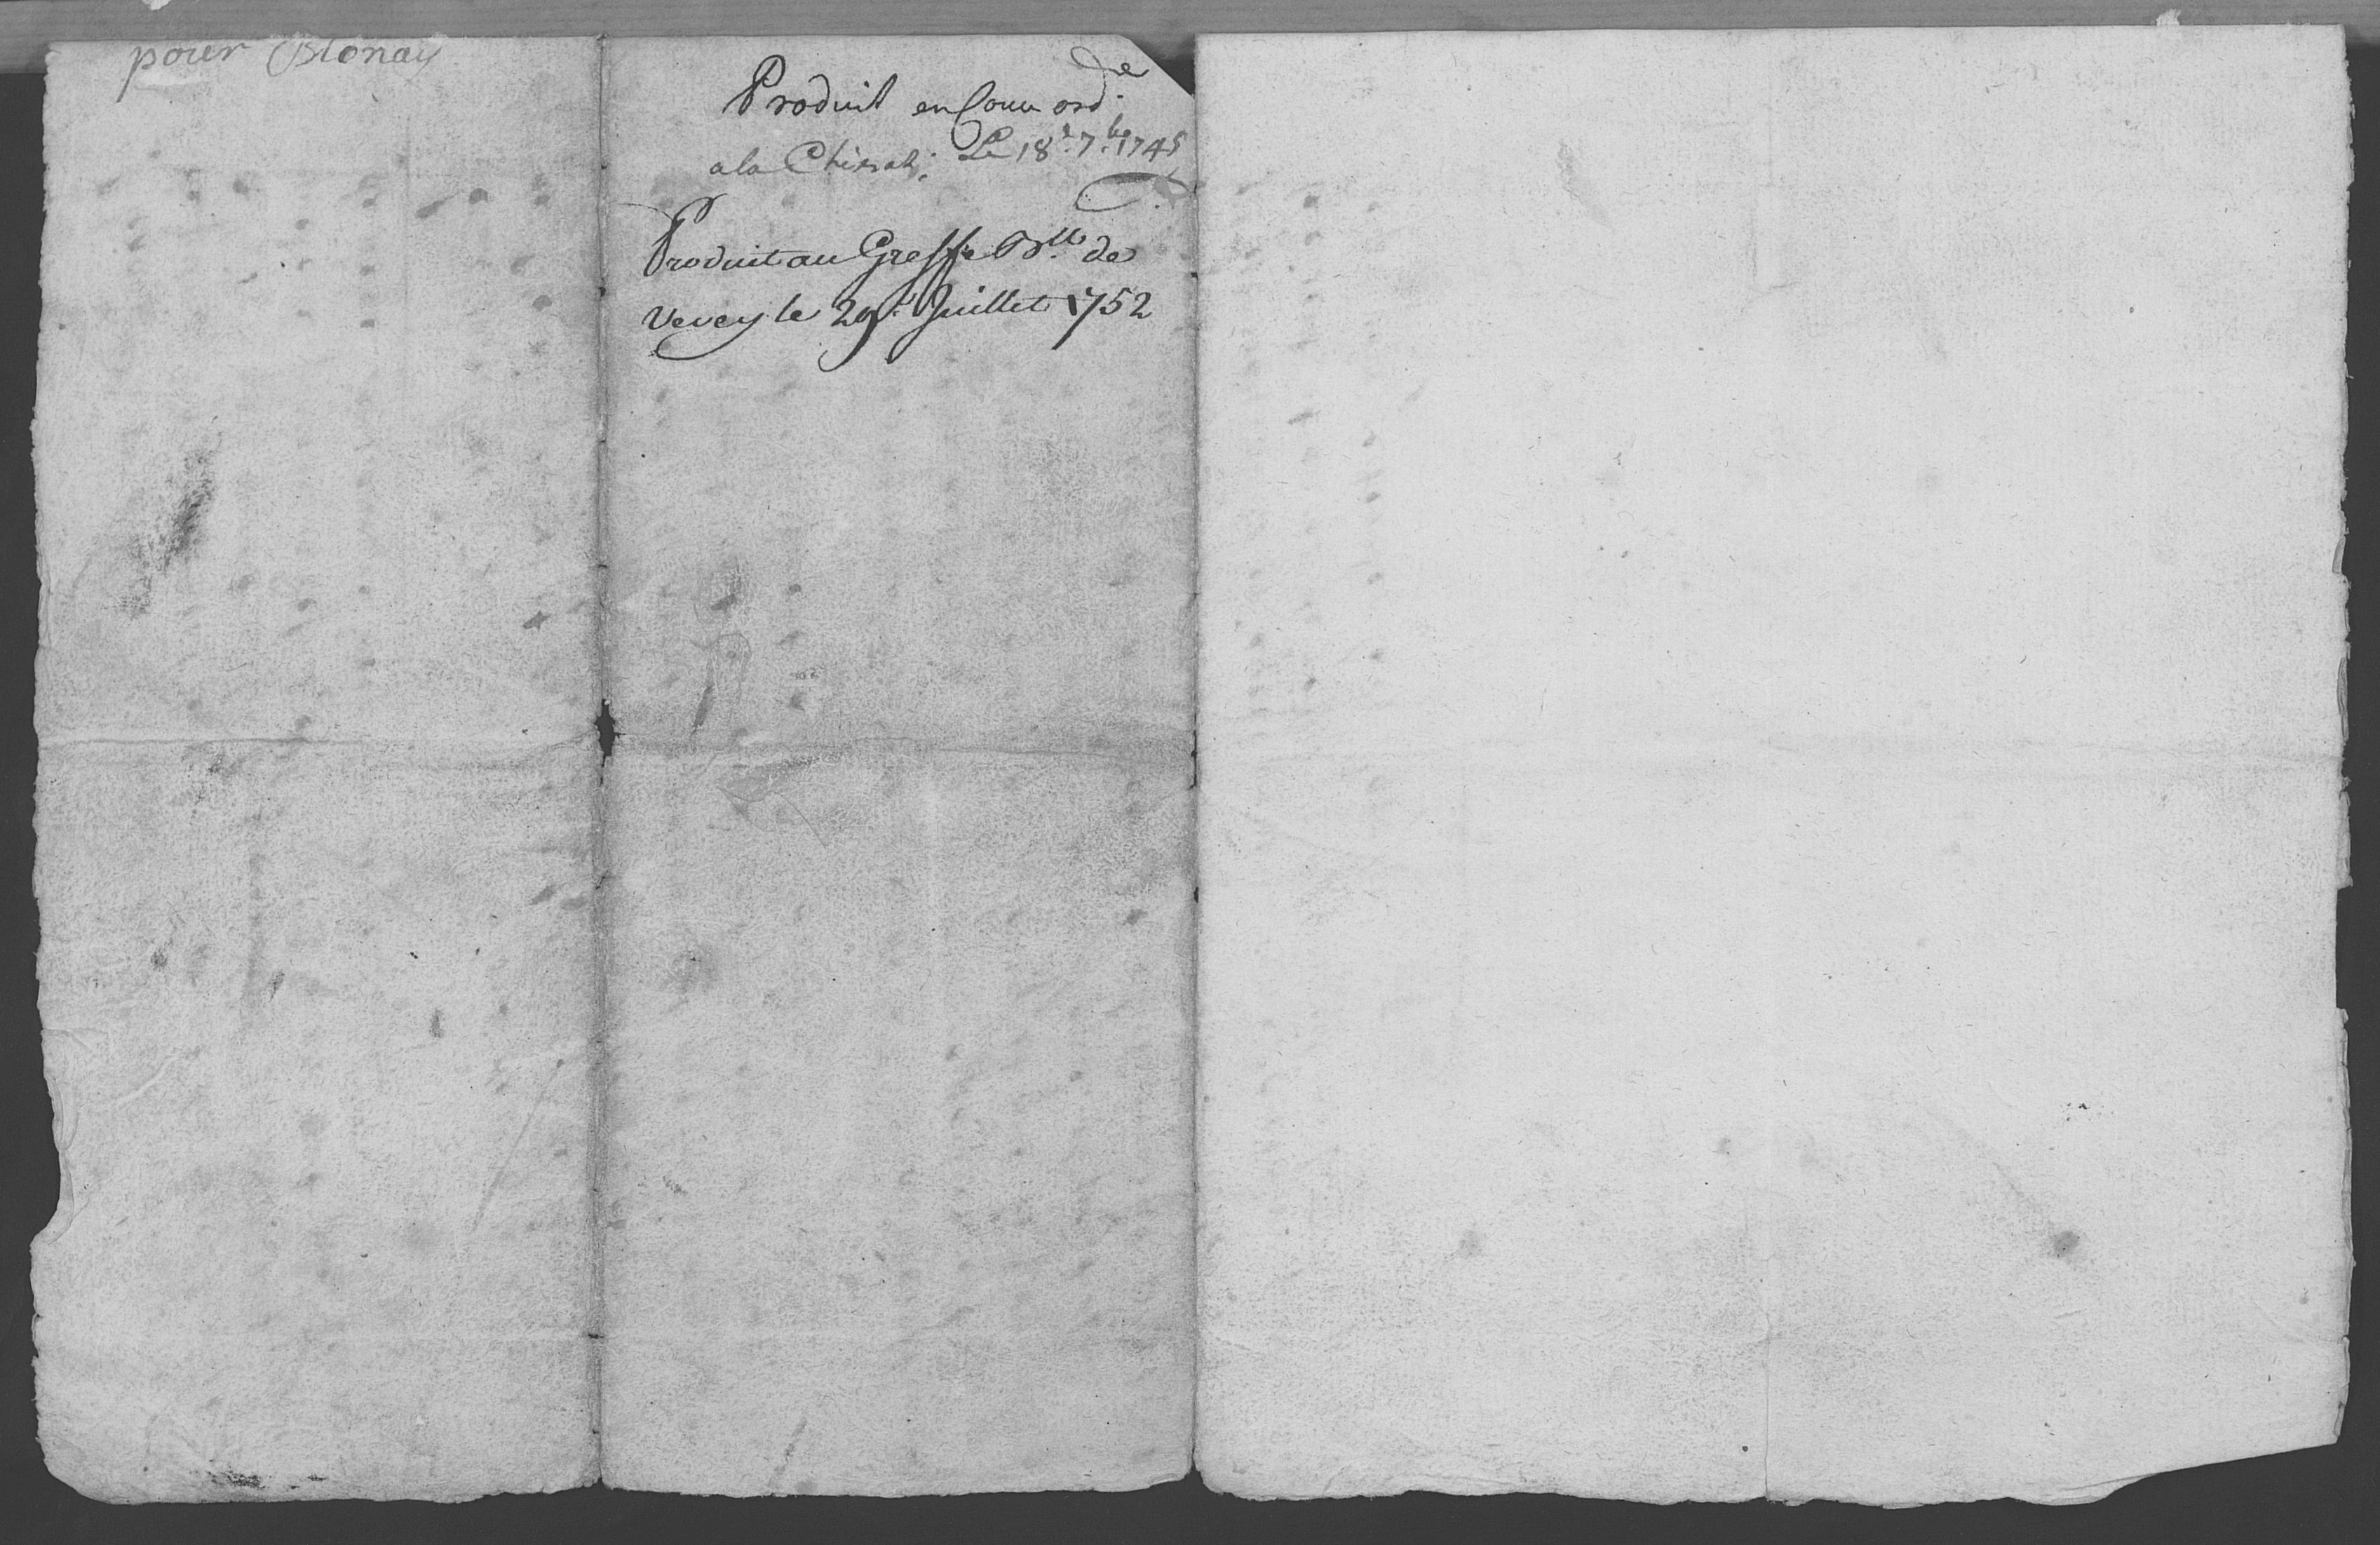 pour Blonay
Produit en Cour ord.re
a la Chiesaz; Le 18.e 7.bre 1745
Produit au Greffe B.lle de
Vevey le 29.e Juillet 1752